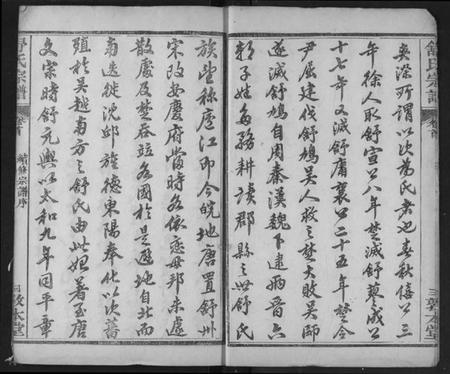 舒氏宗譜
卷首
三
敦本堂
夾漈所謂以次為氏者也春秋僖公三
年徐人取舒宣公八年楚滅舒蓼成公
十七年又滅舒庸襄公二十五年楚令
尹屈建伐舒鳩吳人救之楚大敗吳師
遂滅舒鳩自周秦漢魏下逮兩晉六
朝子姓多務耕讀郡縣之世舒氏
族望稱廬江即今皖地唐置舒州
宋改安慶府當時各依恋母邦未遽
散處及楚吞竝各國於是避地自北而
南迭徙沈邱旌德東陽奉化以次蕃
殖於吳越南方之舒氏由此始著至唐
文宗時舒元輿以太和九年同平章
舒氏宗譜
卷首
續修宗譜序
敦本堂